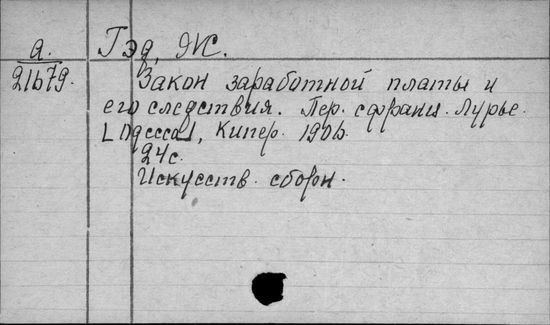 а. Гэд, Ж.
21679. Закон заработной платы и
его следствия. Пер. с франц. Лурье.
[Одесса], Кипер. 1906.
24с.
Искусств. сборн.